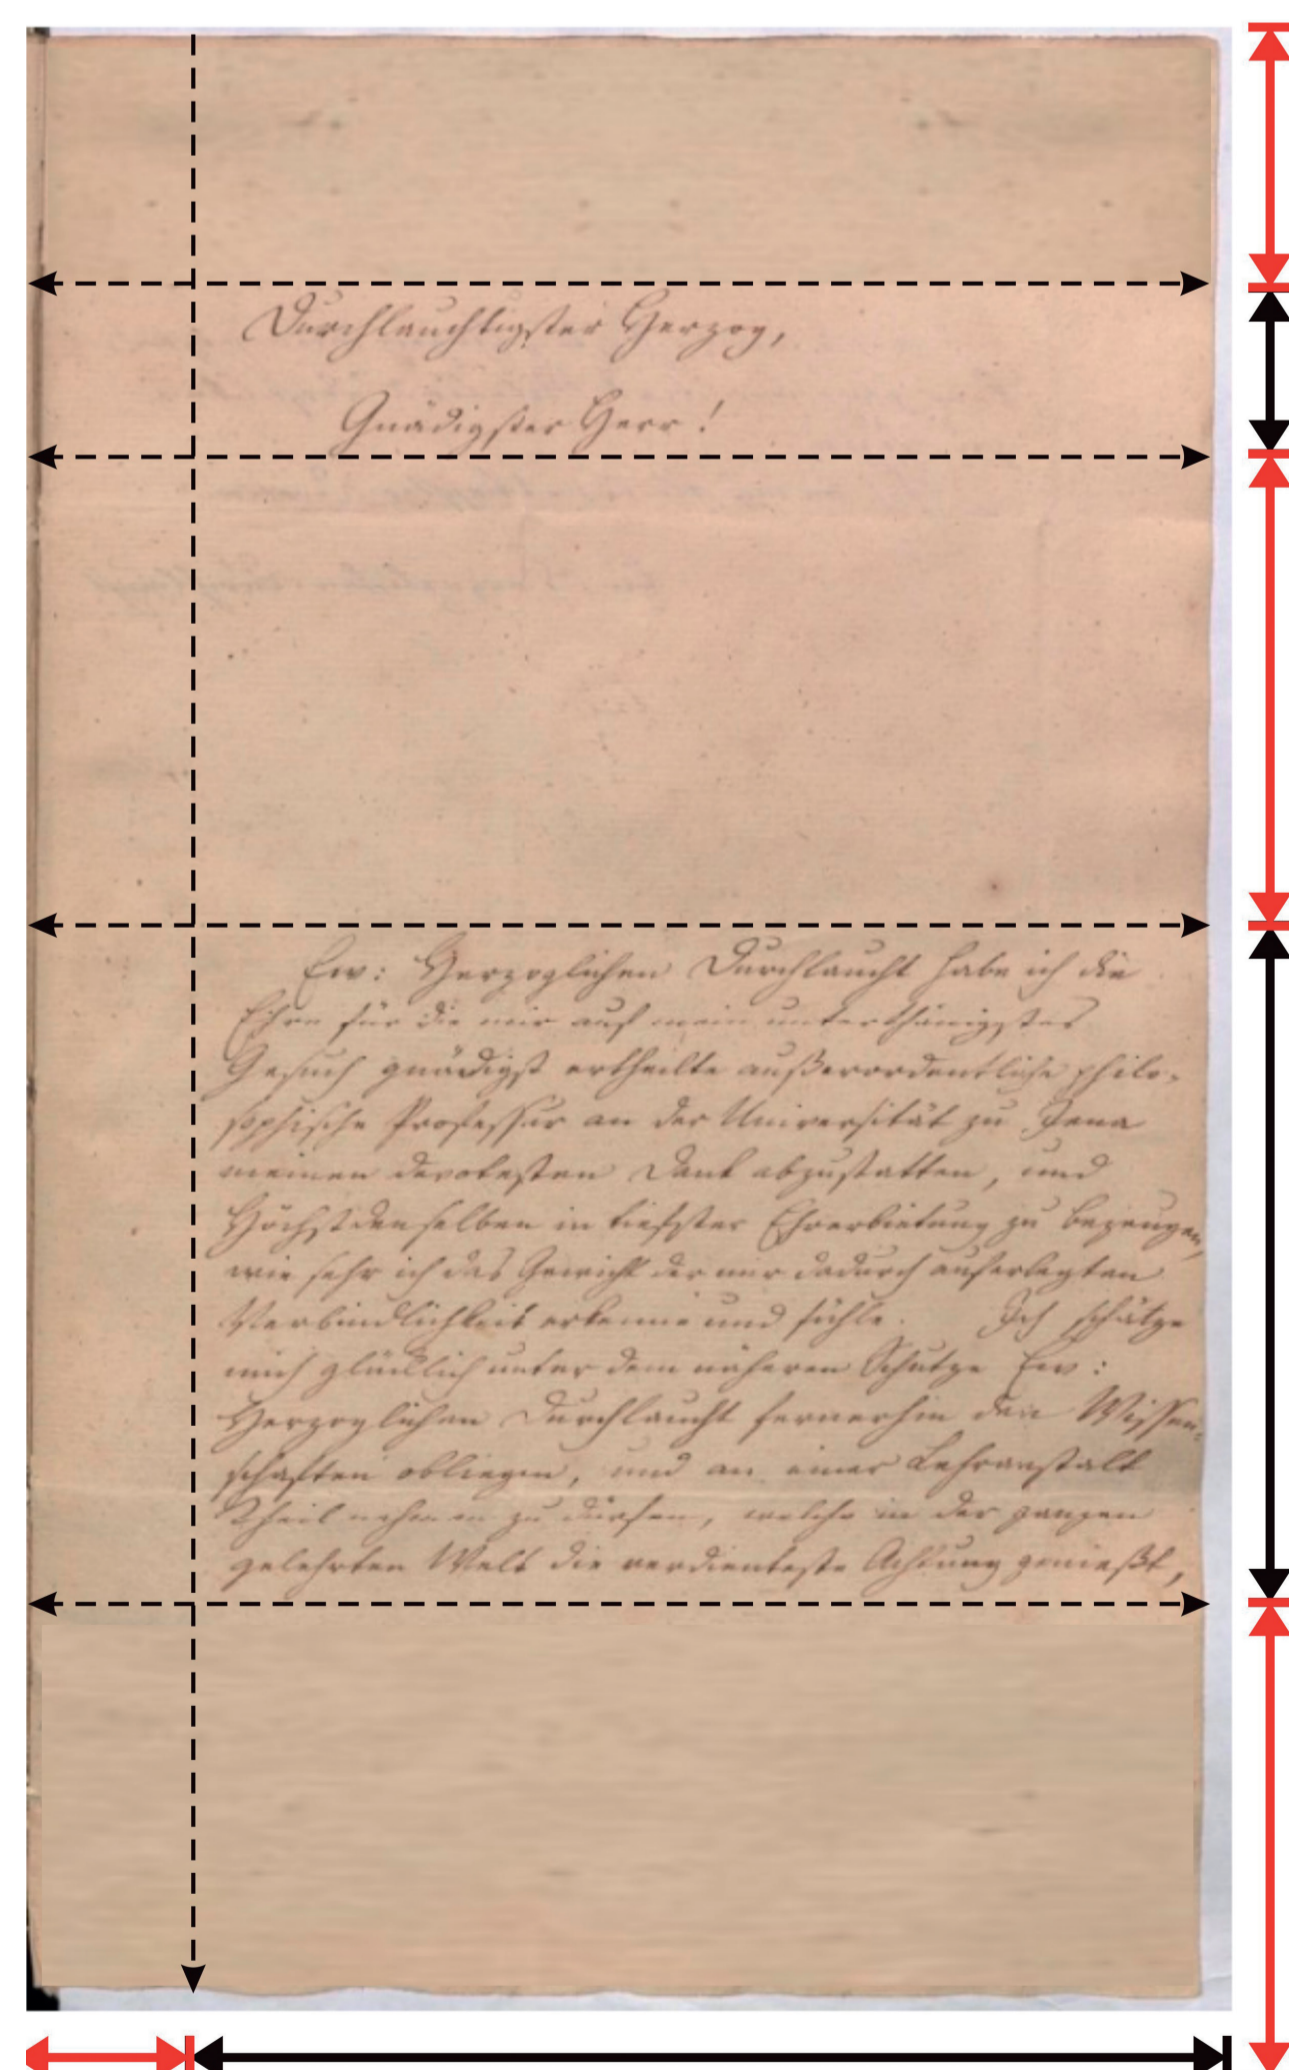 Durchlauchtigster Herzog,
Gnädigster Herr!
Ew: Herzoglichen Durchlaucht habe ich die
Ehre für die mir auf mein unterthänigstes
Gesuch gnädigst ertheilte außerordentliche philo-
sophische Professur an der Universität zu Jena
meinen devotesten Dank abzustatten, und
Höchstdenselben in tiefster Ehrerbietung zu bezeugen,
wie sehr ich das Gewicht der mir dadurch auferlegten
Verbindlichkeit erkenne und fühle. Ich schätze
mich glücklich unter dem näheren Schutze Ew:
Herzoglichen Durchlaucht fernerhin den Wissen-
schaften obliegen, und an einer Lehranstalt
Theil nehmen zu dürfen, welche in der ganzen
gelehrten Welt die verdienteste Achtung genießt,